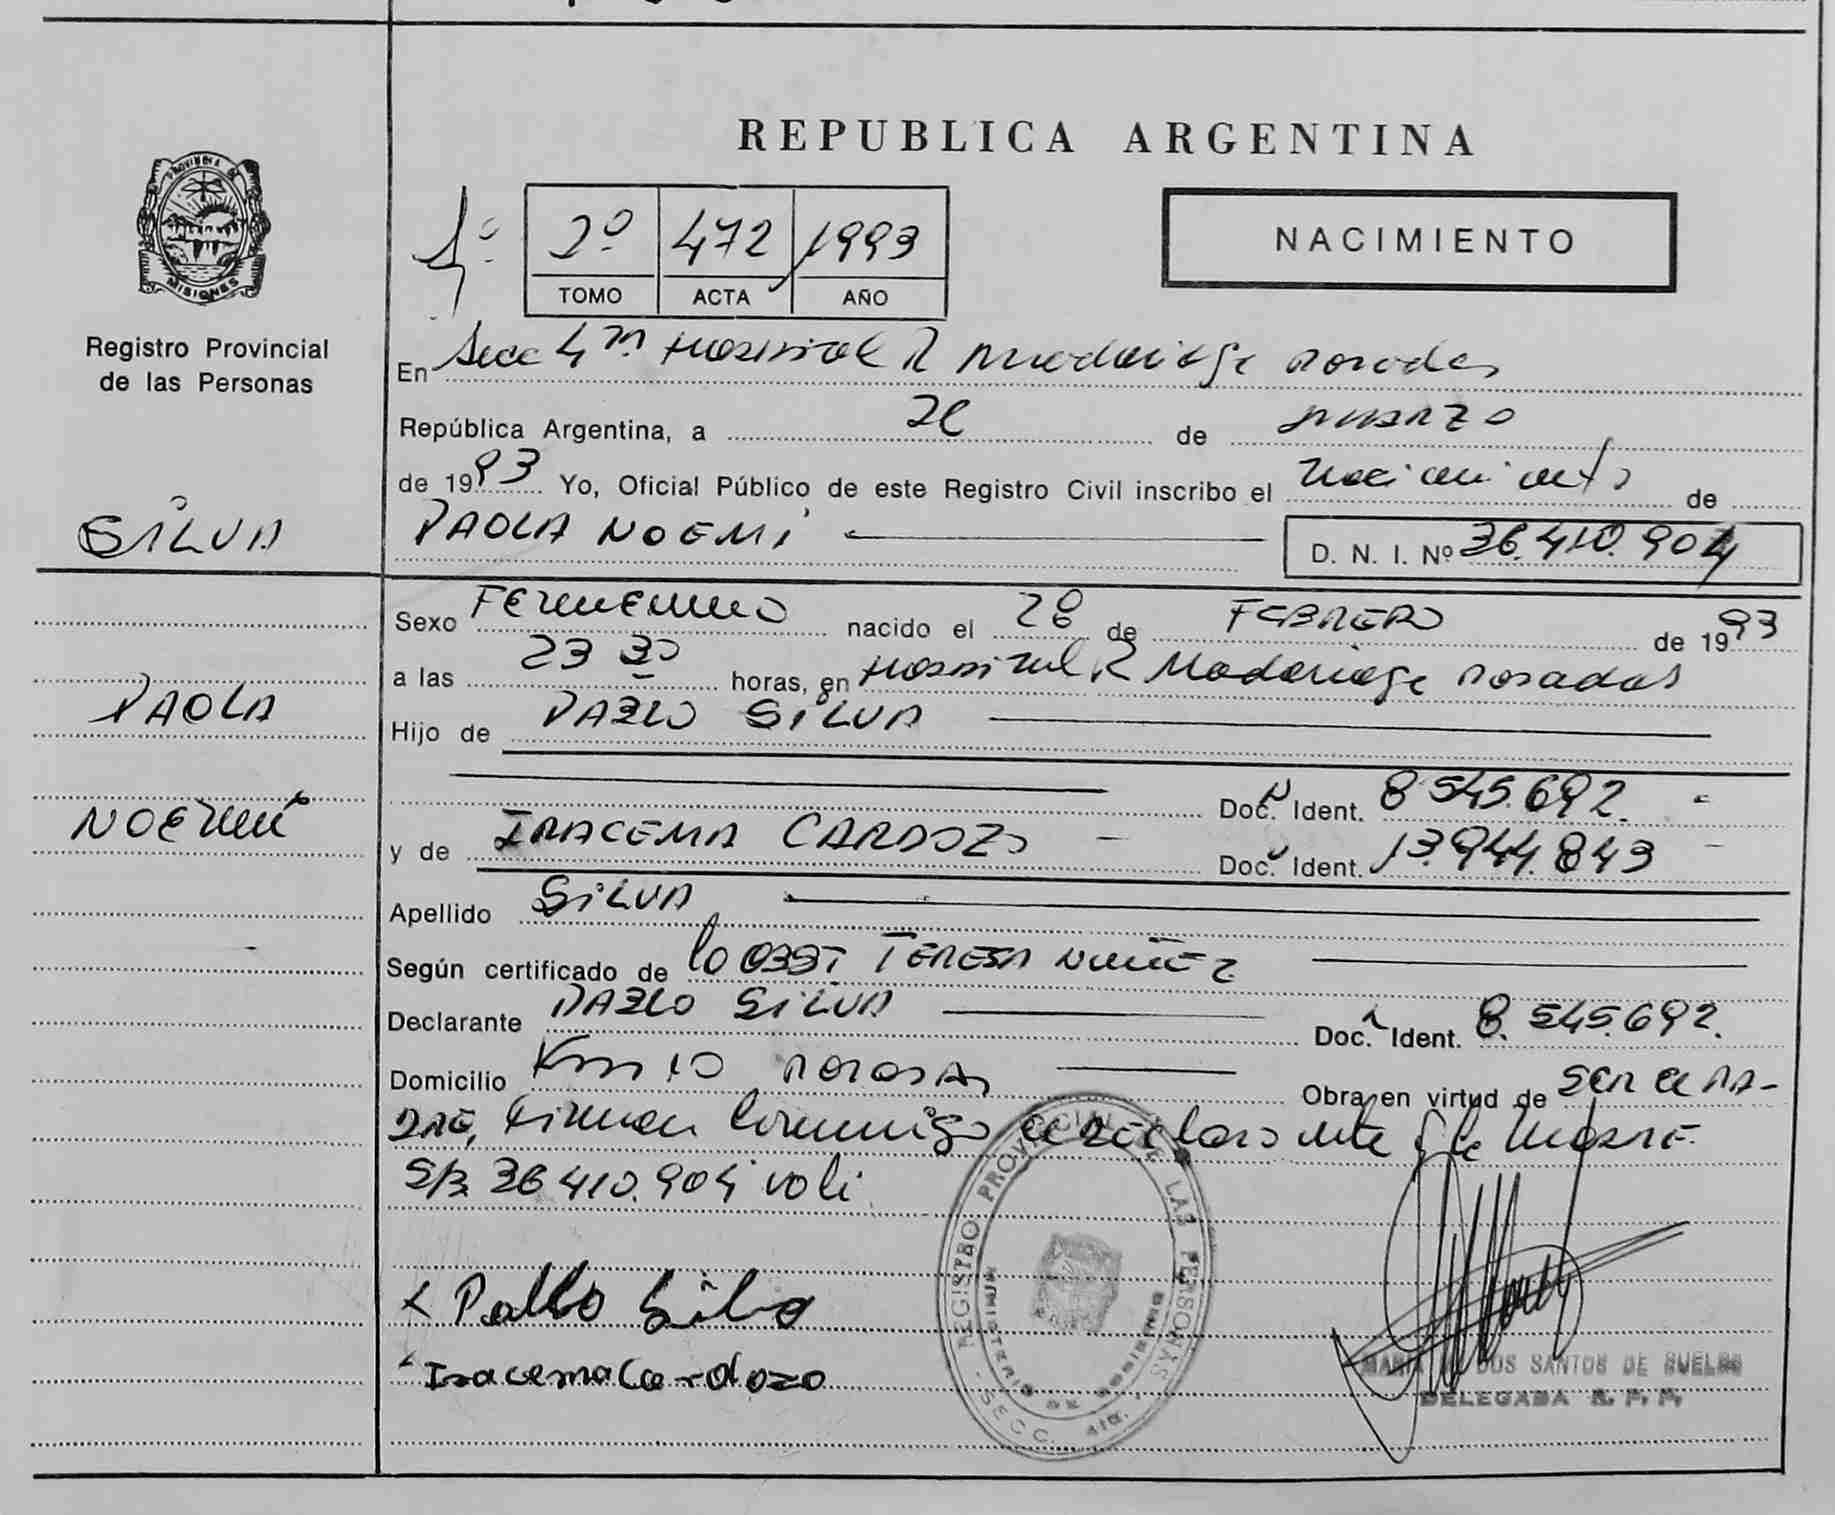 REPUBLICA ARGENTINA
PROVINCIA DE
MISIONES
Registro Provincial
de las Personas
1º 2º 472 1993
TOMO ACTA AÑO
NACIMIENTO
En Secc 4ta Hospital R Madariaga Posadas
República Argentina, a de marzo
de 1993 Yo, Oficial Público de este Registro Civil inscribo el nacimiento de
SILVA
PAOLA NOEMI D. N. I. Nº 36.410.904
Sexo FEMENINO nacido el 28 de FEBRERO de 1993
a las 23 30 horas, en Hospital R Madariaga Posadas
PAOLA
Hijo de PABLO SILVA
Doc. Ident. 8.545.692.
NOEMI
y de IRACEMA CARDOZO Doc. Ident. 13.944.843
Apellido SILVA
Según certificado de la OBST TERESA NUÑEZ
Declarante PABLO SILVA Doc. Ident. 8.545.692.
Domicilio Km 10 Posadas Obra en virtud de SER EL PA-
DRE, Firman conmigo el declarante y la MADRE
S/B 36.410.904 vale
x Pablo Silva
Iracema Cardozo
REGISTRO PROVINCIAL DE LAS PERSONAS
MINISTERIO DE GOBIERNO
SECC. 4ta.
MARIA DOS SANTOS DE
DELEGADA R. P. P.